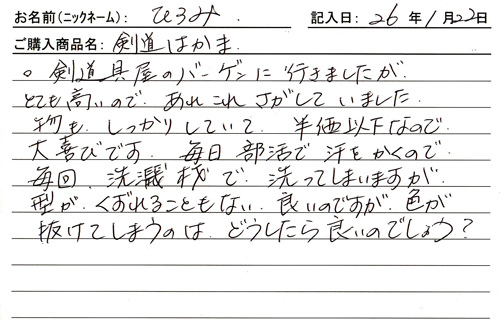 お名前(ニックネーム): ひろみ 記入日: 26年1月22日
ご購入商品名: 剣道はかま
。剣道具屋のバーゲンに行きましたが、
とても高いので、あれこれさがしていました。
物も、しっかりしていて、半価以下なので、
大喜びです。毎日部活で汗をかくので、
毎回、洗濯材で、洗ってしまいますが、
型が、くずれることもない、良いのですが、色が
抜けてしまうのは、どうしたら良いのでしょう?